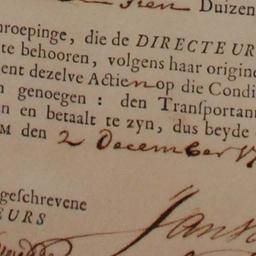 Duizen
nroepinge, die de DIRECTEUR
te behooren, volgens haar origine
ent dezelve Actien op die Condi
n genoegen: den Transportan
n en betaalt te zyn, dus beyde
M den 2 December 17
geschrevene
EURS